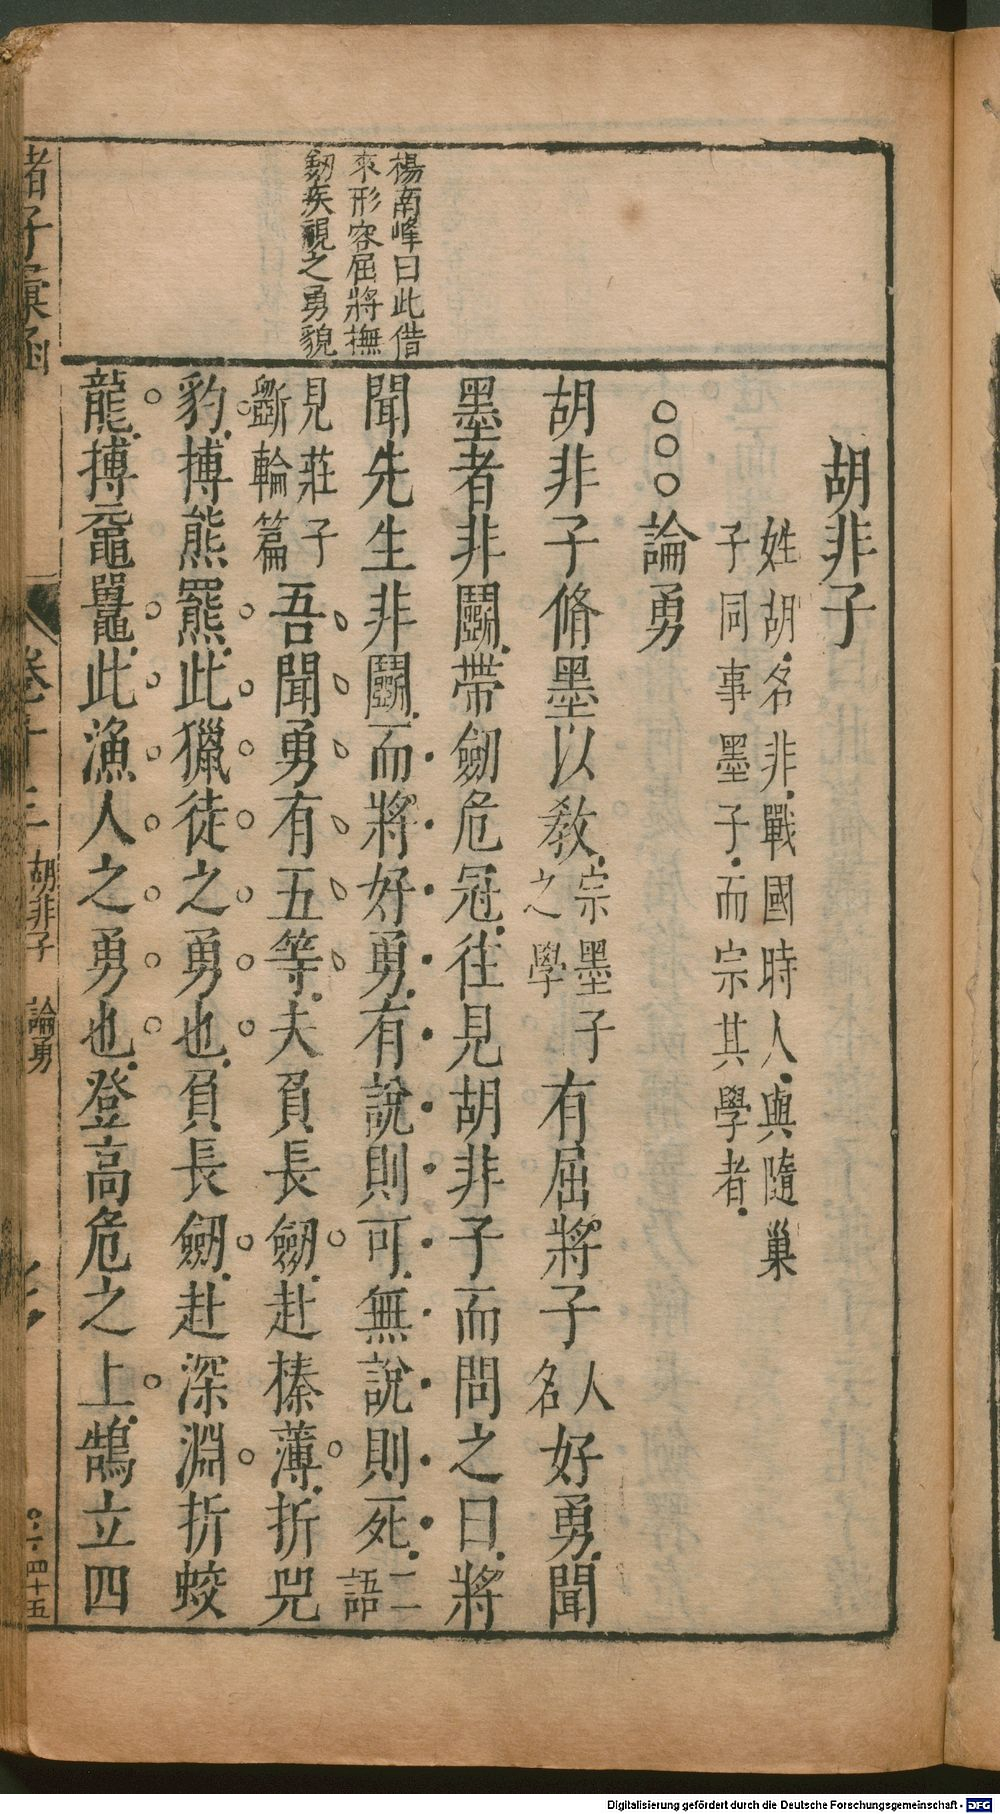 楊南峰曰此借
來形容屈將撫
劔疾視之勇貌
胡非子
姓胡名非戰國時人與隨巢
子同事墨子而宗其學者
○○○論勇
胡非子脩墨以敎宗墨子之學有屈將子人名好勇聞
墨者非鬭帶劔危冠往見胡非子而問之曰將
聞先生非鬭而將好勇有說則可無說則死二語
見莊子斲輪篇吾聞勇有五等夫負長劔赴榛薄折兕
豹搏熊羆此獵徒之勇也負長劔赴深淵折蛟
龍搏黿鼉此漁人之勇也登高危之上鵠立四
諸子彙函
卷十三
胡非子 論勇
四十五
Digitalisierung gefördert durch die Deutsche Forschungsgemeinschaft - DFG